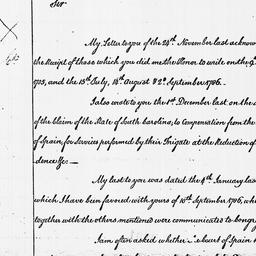 Sir
My Letter to you of the 24th November last acknow
the Receipt of those which you did me the Honor to write on the
1785, and the 15th July, 16th August & 2d September 1786.
I also wrote to you the 1st December last on the
of the Claim of the State of South Carolina, to Compensation from the
of Spain, for Services performed by their Frigate at the Reduction of
dence &c—
My last to you was dated the 4th January las
which I have been favored with yours of 18th September 1786, wh
together with the others mentioned were communicated to Cong
I am often asked whether Court of Spain